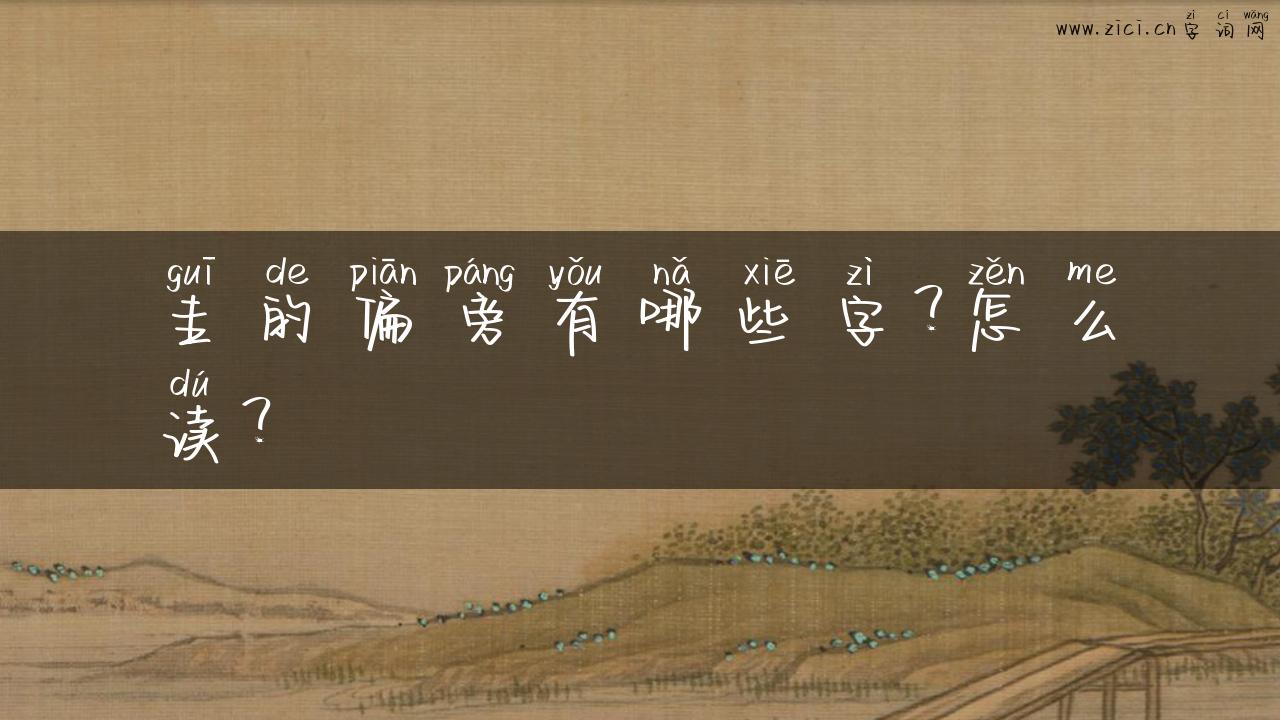 zì cí wǎng
www.zici.cn字词网
guī de piān páng yǒu nǎ xiē zì zěn me
圭的偏旁有哪些字？怎么
dú
读？